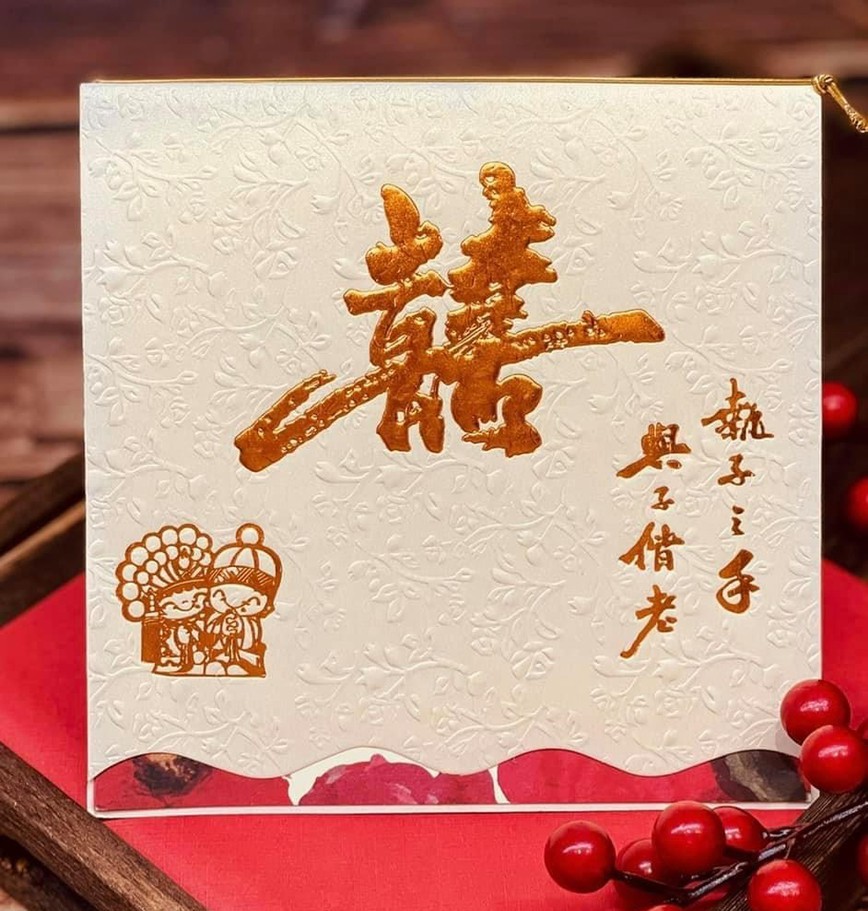 囍
執子之手
與子偕老